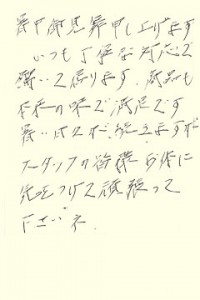 暑中御見舞申し上げます
いつも丁寧な対応で
頂いて居ります。商品も
本来の味で満足です
暑い日々が続きますが
スタッフの皆様お体に
気をつけて頑張って
下さいネ